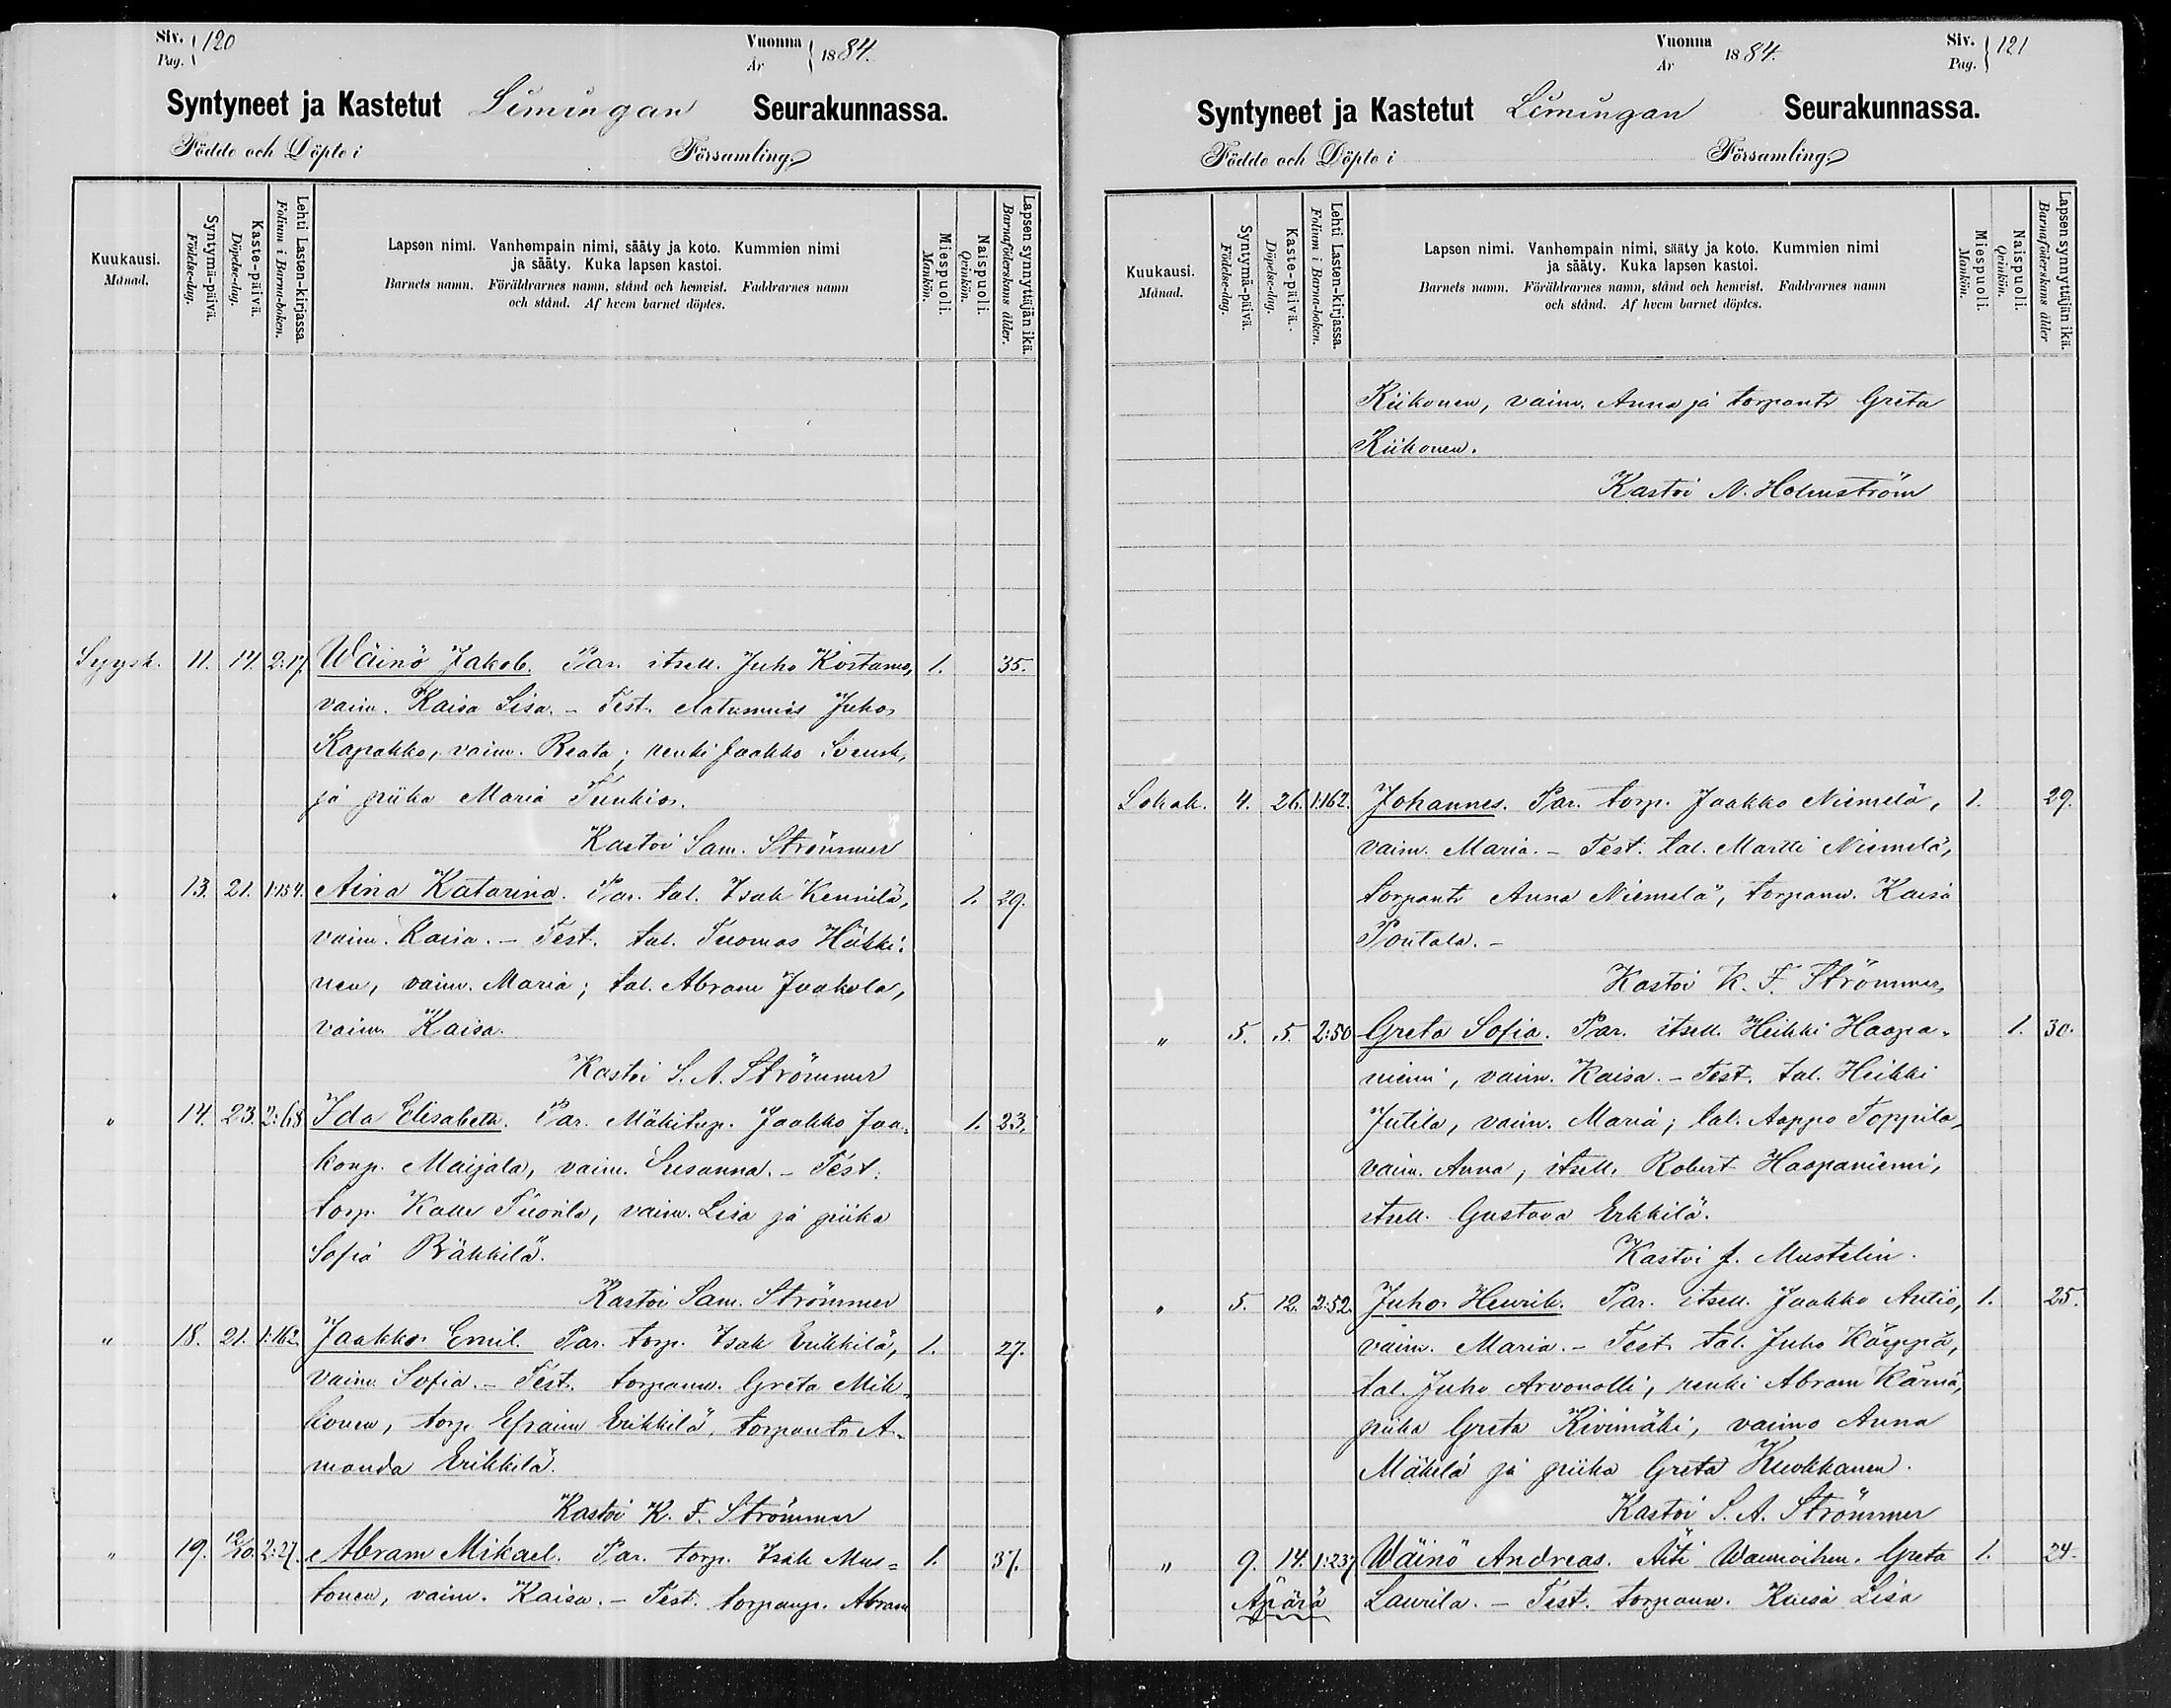 Siv. 120
Pag.
Vuonna 1884.
År
Syntyneet ja Kastetut Limingan Seurakunnassa.
Födde och Döpte i Församling.
Kuukausi.
Månad.
Syntymä-päivä.
Födelse-dag.
Kaste-päivä.
Döpelse-dag.
Lehti Lasten-kirjassa.
Folium i Barna-boken.
Lapsen nimi. Vanhempain nimi, sääty ja koto. Kummien nimi
ja sääty. Kuka lapsen kastoi.
Barnets namn. Föräldrarnes namn, stånd och hemvist. Faddrarnes namn
och stånd. Af hvem barnet döptes.
Miespuoli.
Mankön.
Naispuoli.
Qvinkön.
Lapsen synnyttäjän ikä.
Barnaföderskans ålder.
Syysk. 11. 14. 2:17. Wäinö Jakob. Par. itsell. Juho Kostamo, 1. 35.
vaim. Kaisa Lisa. – Test. Juho
Kapakko, vaim. Reata; renki Jaakko Svensk,
ja piika Maria Junkio.
Kastoi Sam. Strömmer
" 13. 21. 1:154. Aina Katarina. Par. tal. Isak Kennilä, 1. 29.
vaim. Kaisa. – Test. tal. Tuomas Häkki-
nen, vaim. Maria; tal. Abram Jaakola,
vaim. Kaisa.
Kastoi S. A. Strömmer
" 14. 23. 2:68 Ida Elisabeth. Par. Mäkitup. Jaakko Jaa- 1. 23.
konp. Maijala, vaim. Susanna. – Test.
torp. Kalle Tuorila, vaim. Lisa ja piika
Sofia Räkkilä.
Kastoi Sam. Strömmer
" 18. 21. 1:162. Jaakko Emil. Par. torp. Isak Erikkilä, 1. 27.
vaim. Sofia. – Test. torpanv. Greta Mik-
konen, torp. Efraim Erikkilä, torpantr A-
manda Erikkilä.
Kastoi K. F. Strömmer
" 19. 12/10. 2:27. Abram Mikael. Par. torp. Isak Mus- 1. 37.
tonen, vaim. Kaisa. – Test. torpanp. Abram
Vuonna 1884.
År
Siv. 121
Pag.
Syntyneet ja Kastetut Limingan Seurakunnassa.
Födde och Döpte i Församling.
Kuukausi.
Månad.
Syntymä-päivä.
Födelse-dag.
Kaste-päivä.
Döpelse-dag.
Lehti Lasten-kirjassa.
Folium i Barna-boken.
Lapsen nimi. Vanhempain nimi, sääty ja koto. Kummien nimi
ja sääty. Kuka lapsen kastoi.
Barnets namn. Föräldrarnes namn, stånd och hemvist. Faddrarnes namn
och stånd. Af hvem barnet döptes.
Miespuoli.
Mankön.
Naispuoli.
Qvinkön.
Lapsen synnyttäjän ikä.
Barnaföderskans ålder
Riikonen, vaim. Anna ja torpantr Greta
Riikonen.
Kastoi N. Holmström
Lokak. 4. 26. 1:162. Johannes. Par. torp. Jaakko Niemelä, 1. 29.
vaim. Maria. – Test. tal. Martti Niemelä,
torpantr Anna Niemelä, torpanv. Kaisa
Poutala. –
Kastoi K. F. Strömmer,
" 5. 5. 2:50 Greta Sofia. Par. itsell. Heikki Haapa- 1. 30.
niemi, vaim. Kaisa. – Test. tal. Heikki
Jutila, vaim. Maria; tal. Aappo Toppila,
vaim. Anna; itsell. Robert Haapaniemi,
itsell. Gustava Erkkilä.
Kastoi J. Mustelin.
" 5. 12. 2:52. Juho Henrik. Par. itsell. Jaakko Antio, 1. 25.
vaim. Maria. – Test. tal. Juho Käyppä,
tal. Juho Arvonolli, renki Abram Kärnä,
piika Greta Kivimäki, vaimo Anna
Mäkelä ja piika Greta Kuokkanen.
Kastoi S. A. Strömmer
" 9. 14. 1:237 Wäinö Andreas. Äiti Greta 1. 24.
Äpärä Laurila. – Test. torpanv. Kaisa Lisa